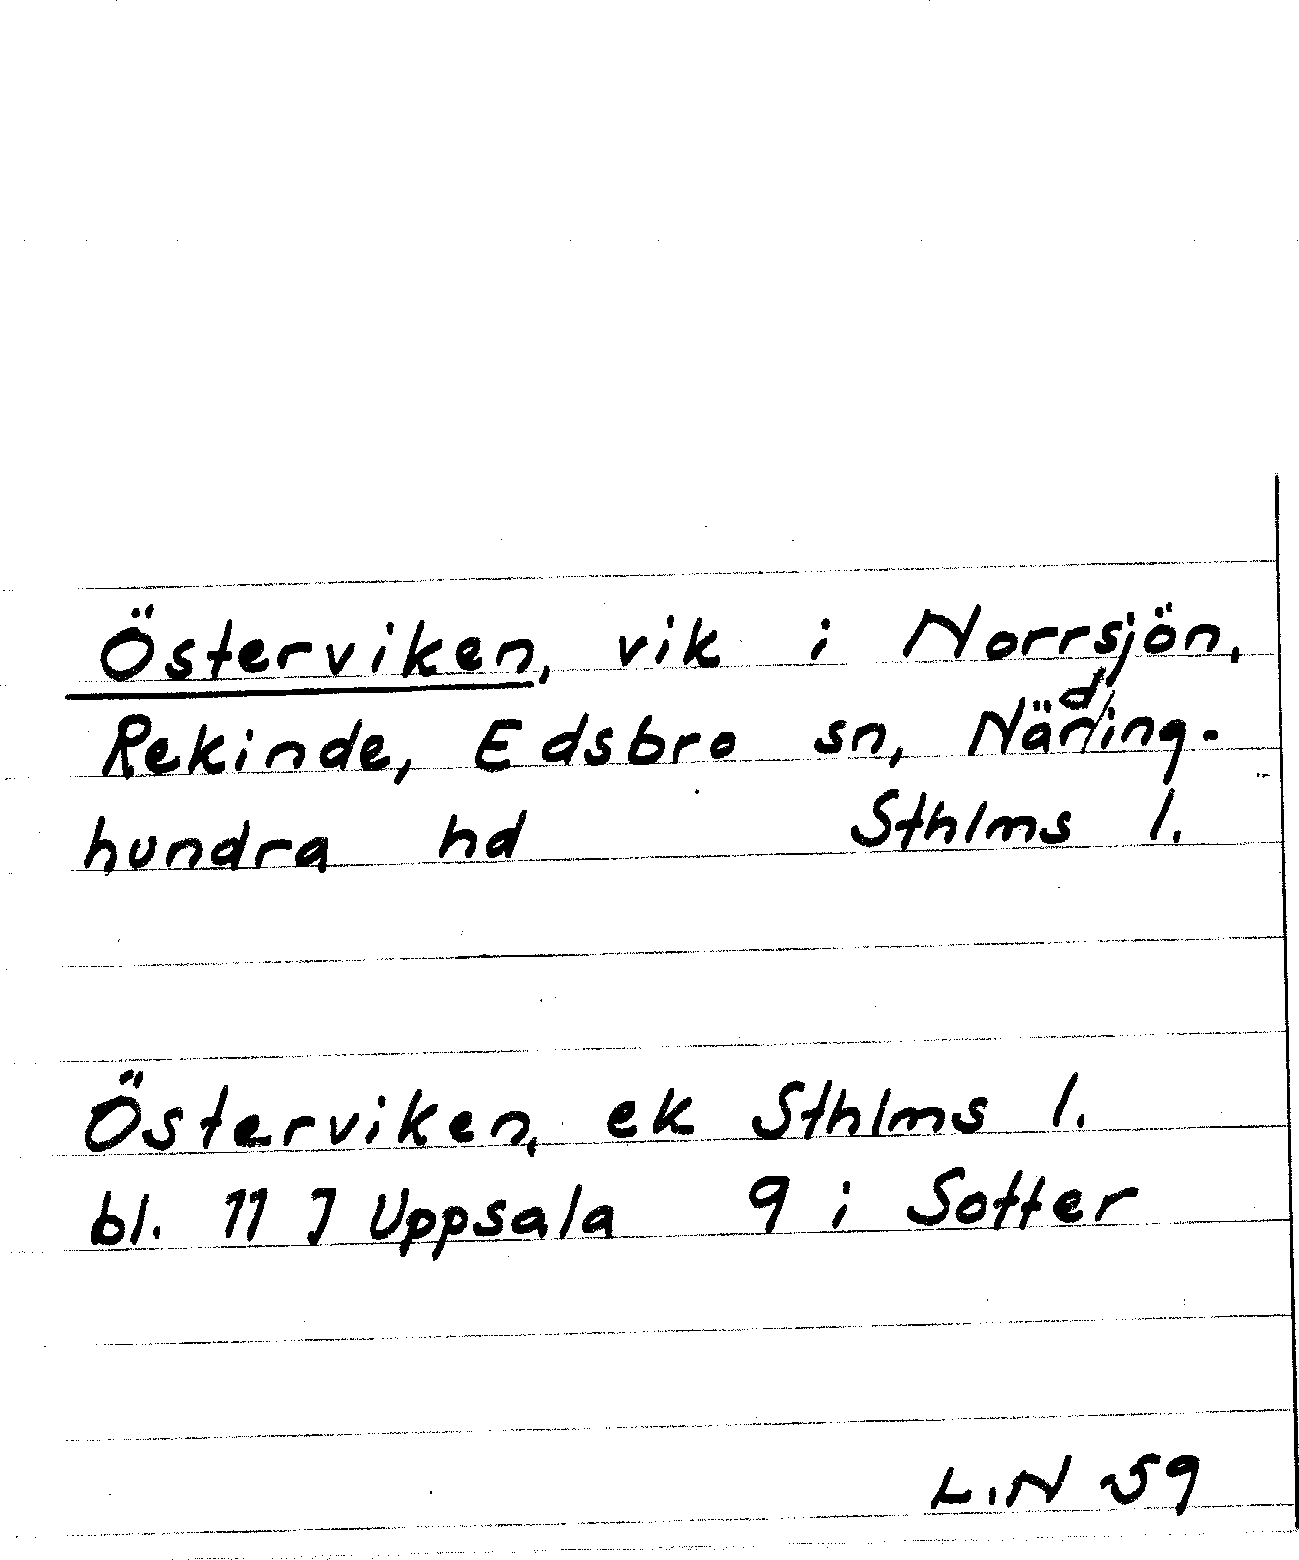 Österviken, vik i Norrsjön,
Rekinde, Edsbro sn, Närding-
hundra hd Sthlms l.
Österviken, ek Sthlms l.
bl. 11 J Uppsala 9 i Sotter
L.N 59